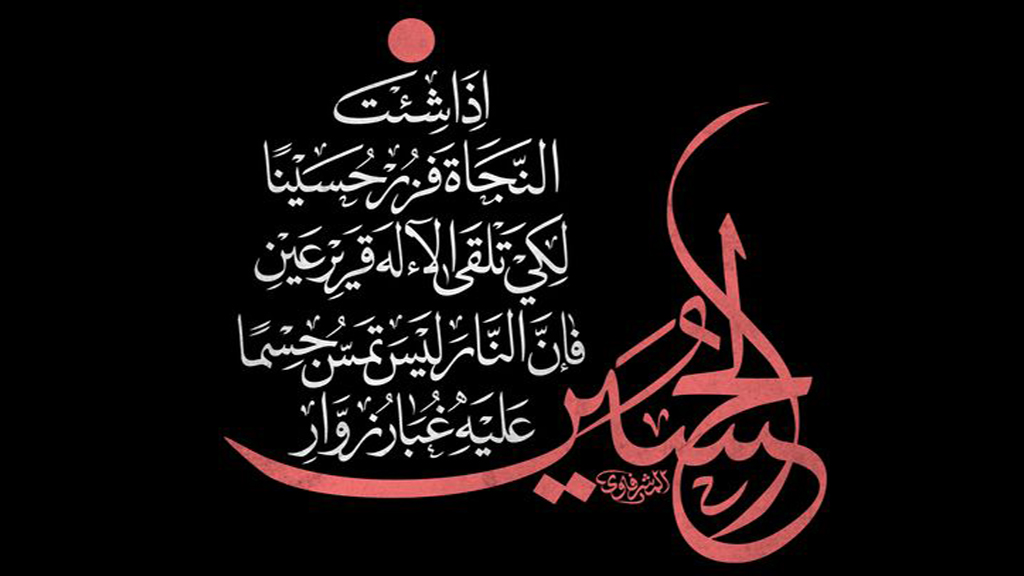 إِذَا شِئْتَ
النَّجَاةَ فَزُرْ حُسَيْنًا
لِكَيْ تَلْقَى الآءلَهَ قَرِيْرَ عَيْنِ
فَإِنَّ النَّارَ لَيْسَ تَمَسُّ جِسْمًا
عَلَيْهِ غُبَارُ زُوَّارِ
الحسين
الشرفاوي